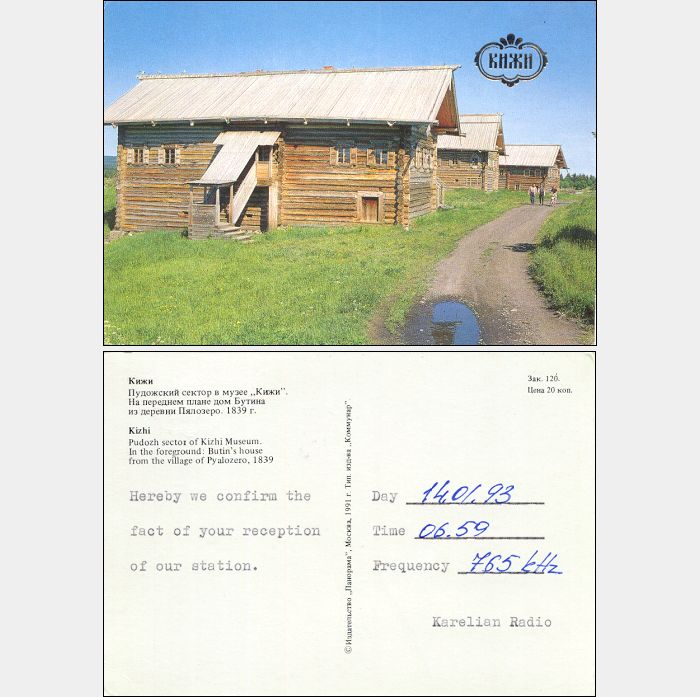 КИЖИ
Кижи
Пудожский сектор в музее „Кижи”.
На переднем плане дом Бутина
из деревни Пялозеро. 1839 г.
Kizhi
Pudozh sector of Kizhi Museum.
In the foreground: Butin's house
from the village of Pyalozero, 1839
Зак. 126.
Цена 20 коп.
© Издательство „Панорама”, Москва, 1991 г. Тип. изд-ва „Коммунар”.
Hereby we confirm the
fact of your reception
of our station.
Day 14.01.93
Time 06.59
Frequency 765 kHz
Karelian Radio